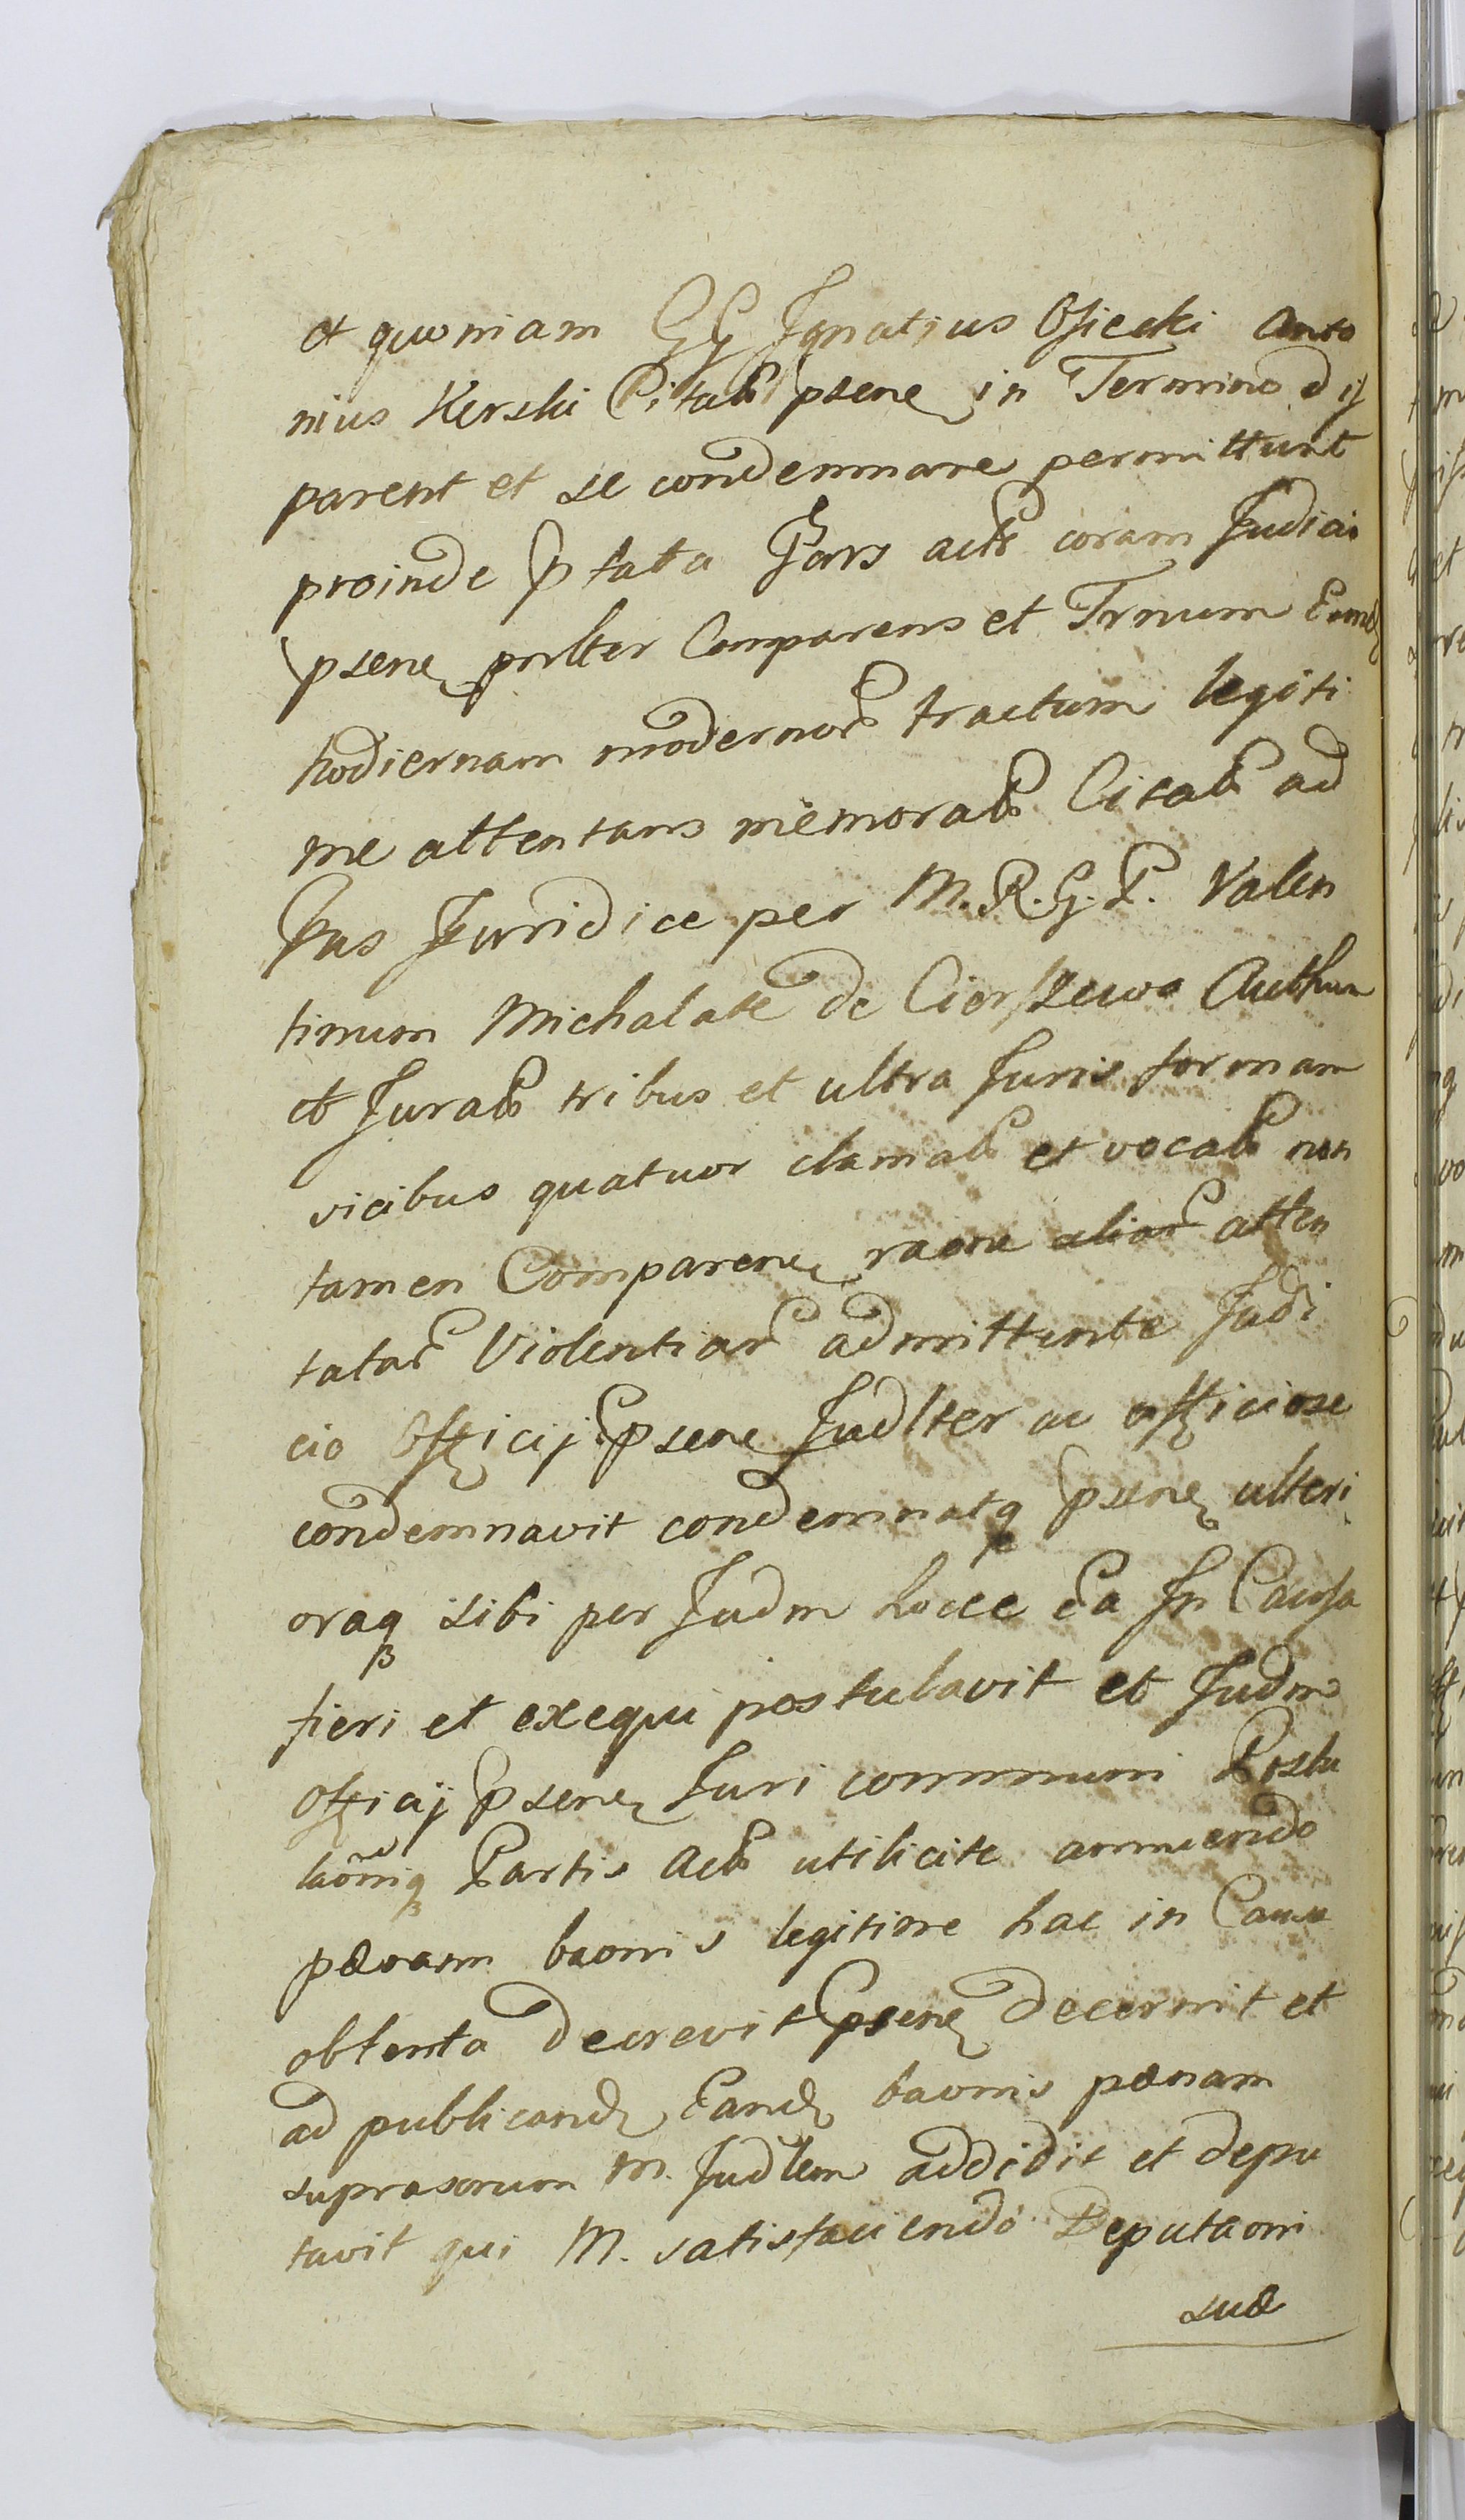 et quoniam GG Ignatius Osiecki Anto
nius Kerski Citati psene in Termino dij
parent et se condemnare permittunt
proinde ptata Pars actr coram Judicio
psene pnlter Comparens et Trnum Eund
hodiernam modernor tractum legiti
me attentans memorat Citat ad
Jus Juridice per M.R.G.P. Valen
tinum Michalak de Cierszewo
et Jurat tribus et ultra Juris formam
vicibus quatuor clamat et vocat non
tamen Comparen raone aliar atten
tatar Violentiar admittente Judi
cio Officij psene Judlter ac officiose
condemnavit condemnatq psene ulteri
oraq sibi per Judm hocce Ea In Causa
fieri et exequi postulavit et Judm
Officij psene Juri communi Postu
laoniq Partis Act utilicite annuendo
pænam baonis legitime hac in Causa
obtenta decrevit psene decernit et
ad publicand Eand baonis pænam
suprasorum M. Judlem addidit et depu
tavit qui M. satisfaciendo Deputaoni
suæ